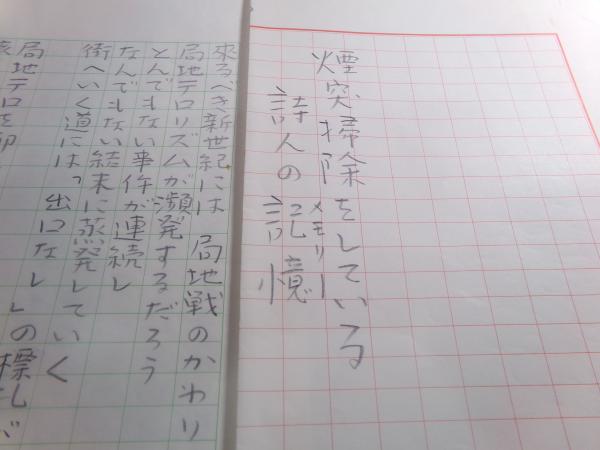 煙突掃除をしている
詩人の記憶
メモリー
来るべき新世紀には 局地戦のかわり
局地テロリズムが瀕発するだろう
とんでもない事件が連続し
なんでもない結末に蒸発していく
街へいく道には「出口なし」の標札が
局地テロを